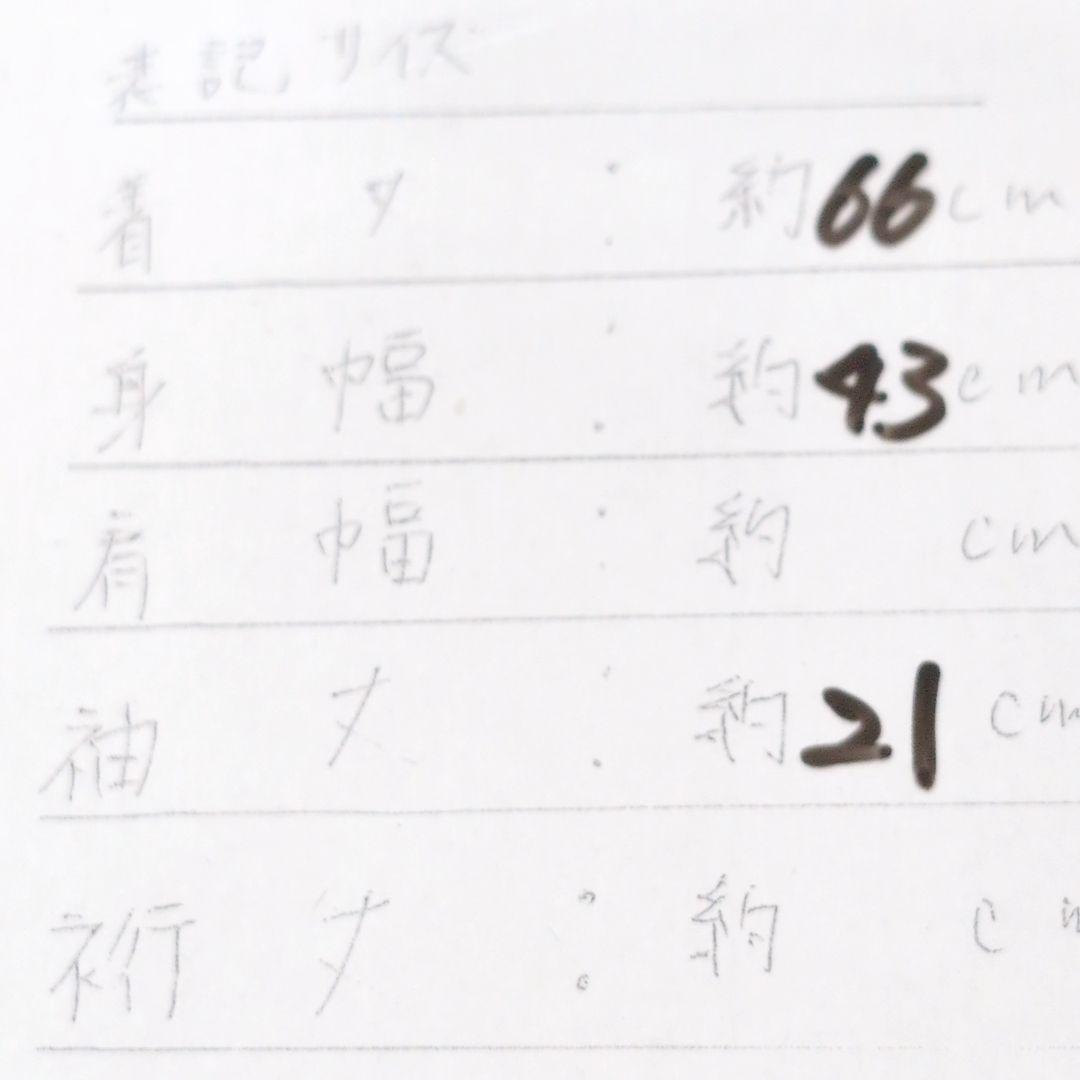 表記サイズ
着丈:約66cm
身幅:約43cm
肩幅:約 cm
袖丈:約21cm
裄丈:約 cm